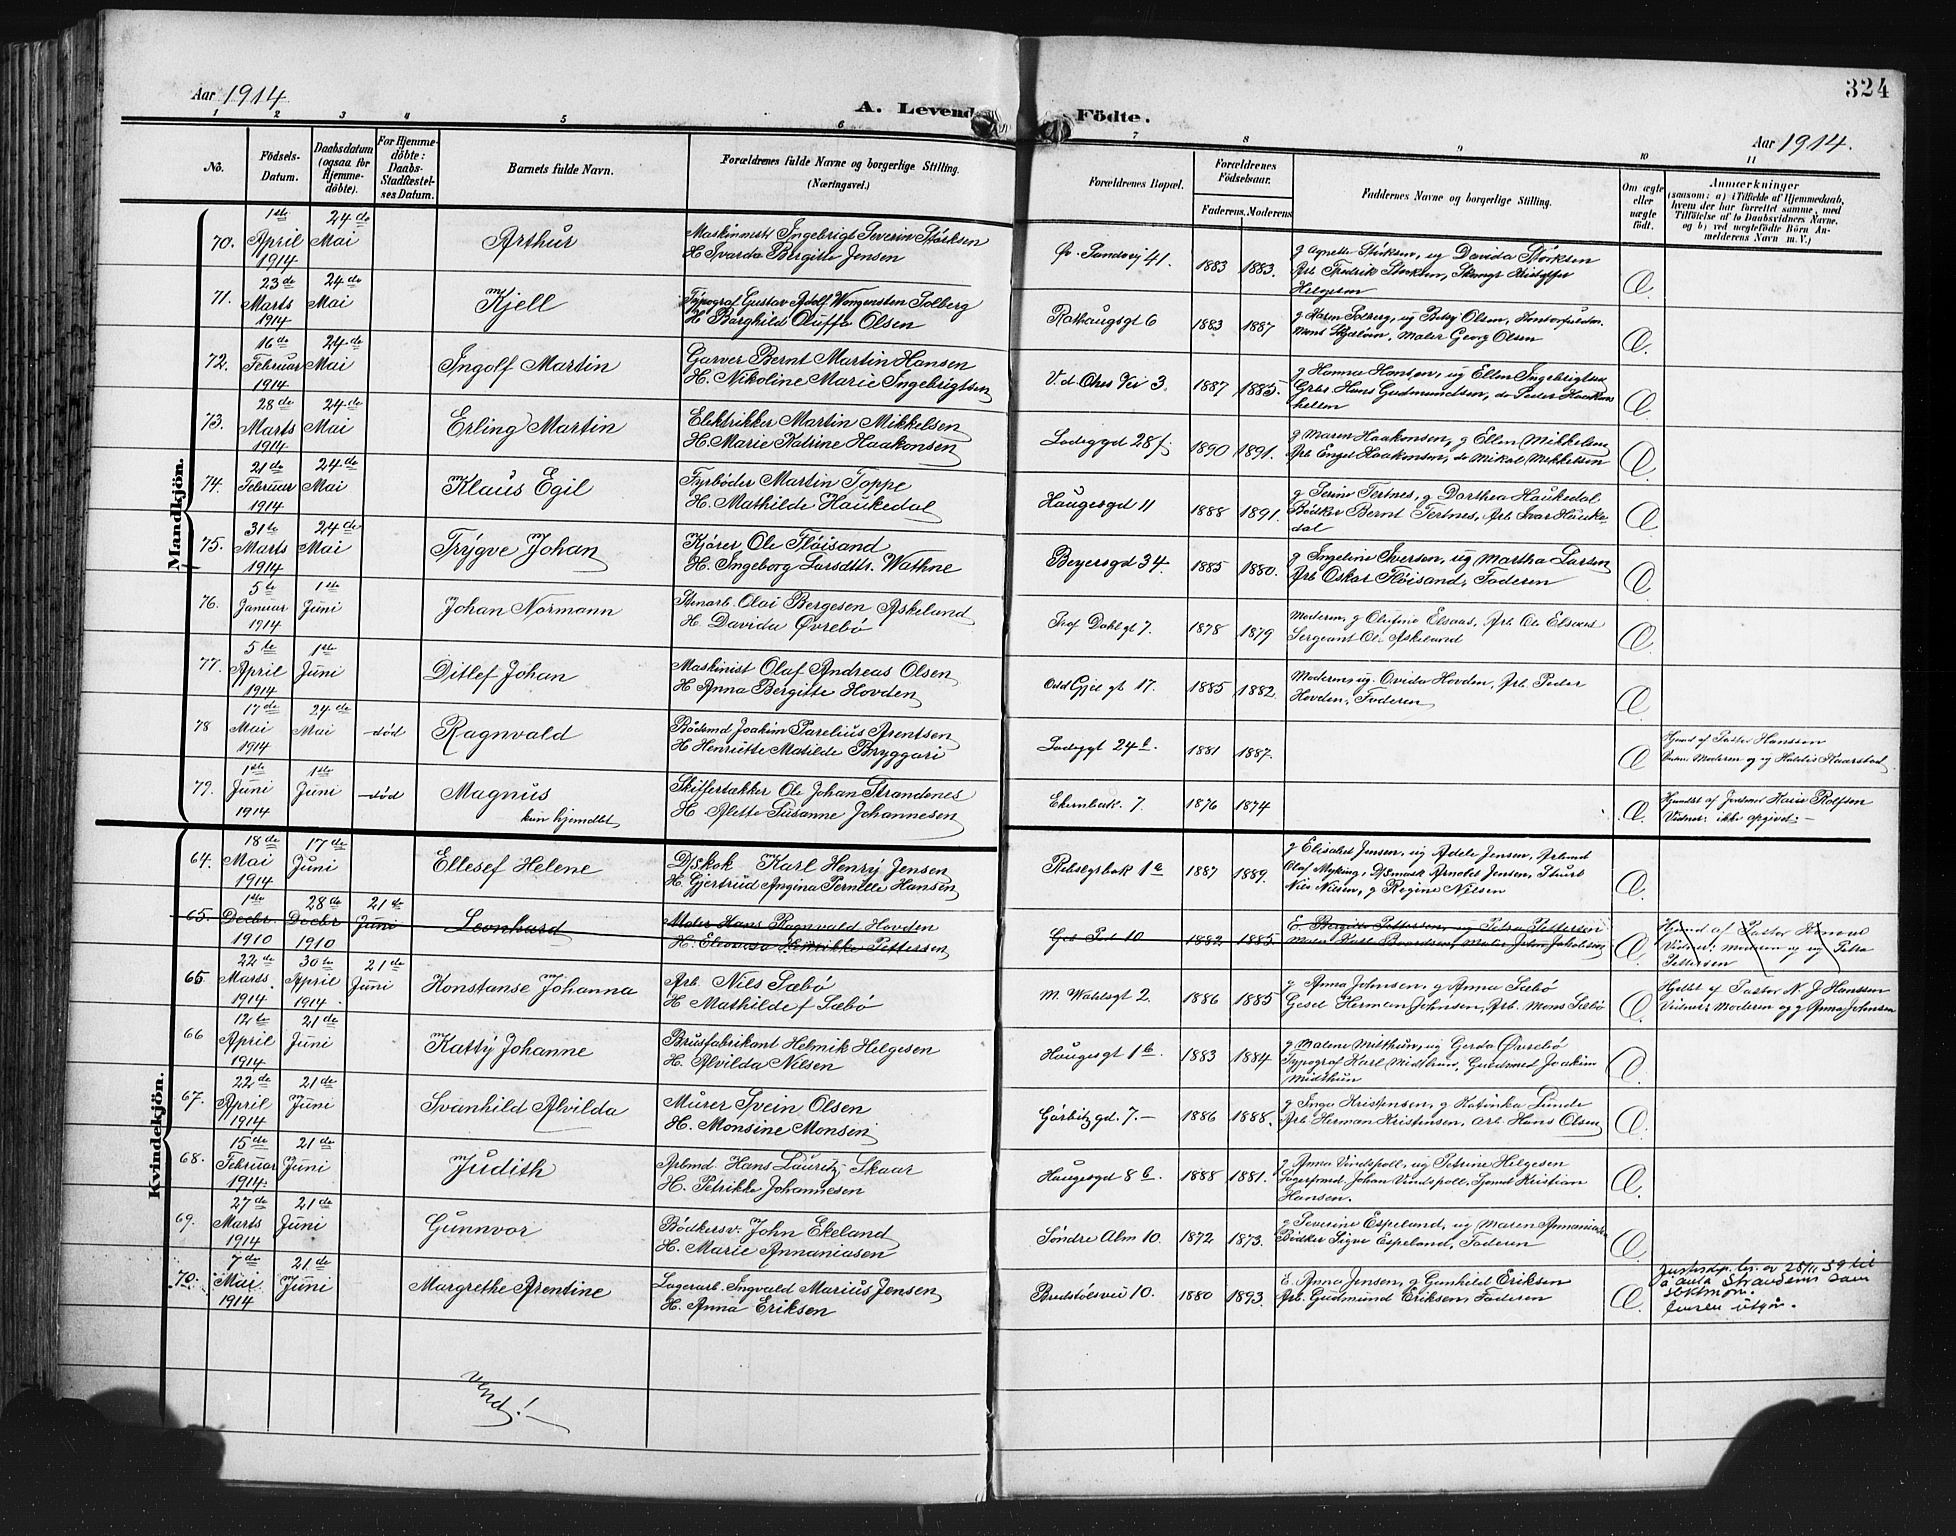 324
Aar 1914
A. Levende Födte.
Aar 1914.
1 2 3 4 5 6 7 8 9 10 11
No.
Födsels-Datum.
Daabsdatum (ogsaa för Hjemmedöbte).
For Hjemmedöbte: Daabs-Stadfæstelses Datum.
Barnets fulde Navn.
Forældrenes fulde Navne og borgerlige Stilling. (Næringsvei.)
Forældrenes Bopæl.
Forældrenes Födselsaar.
Faderens. Moderens.
Faddernes Navne og borgerlige Stilling.
Om ægte eller uægte födt.
Anmærkninger
(saasom: a) i Tilfælde af Hjemmedaab,
hvem der har forrettet samme, med
Tilföielse af to Daabsvidners Navne,
og b) ved uægtefödte Börn Anmelderens Navn m. V.)
Mandkjön.
70. 1ste April 1914 24de Mai Arthur
Maskinmest Ingebrigt Severin Størksen
H. Svarda Bergitte Jensen
Øv. Sandvej 41. 1883 1883.
g Agnette Størksen, ug Davida Størksen
Arb. Fredrik Størksen,
Helgesen
71. 23de Marts 1914 24de Mai Kjell
Typograf Gustav Adolf Solberg
H Borghild Oluffa Olsen
Rathaugsgt 6 1883 1887
g Maren Solberg, ug Betsy Olsen,
Mons Maler Georg Olsen
72. 16de Februar 1914 24de Mai Ingolf Martin
Garver Bernt Martin Hansen
H. Nikoline Marie Ingebrigtsen
V. d Ohes Vei 3. 1887 1885.
g Hanna Hansen, ug Ellen Ingebrigtsen
Grbs. Hans Gudmundsen, do Peder Haakons
hellen
73. 28de Marts 1914 24de Mai Erling Martin
Elektrikker Martin Mikkelsen
H. Marie Katrine Haakonsen
Ladeggd 28f 1890 1891.
g Maren Haakonsen, g Ellen Mikkelsen
Arb Engel Haakonsen, do Mikal Mikkelsen
74. 21de Februar 1914 24de Mai Klaus Egil
Fyrbøder Martin Toppe
H. Mathilde Haukedal
Haugesgd 11 1888 1891.
g Serine Tertnes, g Dorthea Haukedal
Bødker Bernt Tertnes, Arb Ivar Hauke-
dal
75. 31te Marts 1914 24de Mai Trygve Johan
Kjører Ole Fløisand
H. Ingeborg Larsdttr. Wathne
Beyersgd 34. 1885 1880.
g Ingeline Iversen, ug Martha Larsen
Arb Oskar Fløisand, Faderen
76. 5te Januar 1914 1ste Juni Johan Normann
Stenarb. Olai Bergesen Askeland
H. Davida Øvrebø
Prof Dahlgt 7. 1878 1879
Moderen, g Olufine Elsaas, Arb. Ole Elsaas
Sergeant Ole Askeland
77. 5te April 1914 1ste Juni Ditlef Johan
Maskinist Olaf Andreas Olsen
H Anna Bergitte Hovden
Odd Gjel gt 17. 1885 1882.
Moderen, ug. Ovida Hovden, Arb. Peder
Hovden, Faderen
78 17de Mai 1914 24de Mai død Ragnvald
Bødsmd Joakim Parelius Arentsen
H Henriette Matilde Bryggari
Ladeggt 24b. 1881 1887.
Hjemd af Pastor Hanssen
Moderen og ug Haldis Kaarstad
79. 1ste Juni 1914 1ste Juni død Magnus
kun hjemdbt
Skifertækker Ole Johan Strandenes
H. Alette Susanne Johannesen
7. 1876 1874
Hjemdbt af Jordmor Rolfsen
Vidner: ikke opgivet. —
Kvindekjön.
64. 18de Mai 1914 17de Juni Ellesef Helene
D/skok Karl Henry Jensen
H. Gjertrud Angina Pernille Hansen
1a 1887 1889.
g Elisabet Jensen, ug Adele Jensen, Arbmd
Olaf Myking, D/Smask Arnolds Jensen,
Nils Nilsen, g Regine Nilsen
65. 1ste Decbr 1910 28de Decbr 1910 21de Juni Leonhard
Maler Hans Ragnvald Hovden
H. Henrikke Pettersen
10 1882 1885
E. Bergitte Pettersen, ug Petra Pettersen
Hjemd af Pastor
Vidner: Moderen og ug Petra
Pettersen
65 22de Marts. 1914 30te April 1914. 21de Juni Konstanse Johanna
Arb. Nils Sæbø
H. Mathilde f Sæbø
M. Wahlsgt 2. 1886 1885
g Anna Johnsen, g Anna Sæbø
Gesel Herman Johnsen, Arb. Mons Sæbø
Hjdbt af Pastor N. J Hanssen
Vidner: Moderen og g Anna Johnsen
66 12te April 1914 21de Juni Katty Johanne
Brusfabrikant Helmik Helgesen
H. Alvilda Nilsen
Haugesgt 1b. 1883 1884
g Malene Midthun, ug Gerda Øvrebø
Typograf Karl Midthun, Gundmed Joakim
Midthun
67. 22de April 1914 21de Juni Svanhild Alvilda
Murer Svein Olsen
H. Monsine Monsen
Gørbitzgd. 7. — 1886 1888.
g Inga Kristensen, g Katinka Lunde
Arb. Herman Kristensen, Arb. Hans Olsen
68. 15de Februar 1914. 21de Juni Judith
Arbmd. Hans Lauritz Skaar
H. Petrikke Johannesen
Haugesgd 8b. 1888 1881.
g Anna Vindspoll, ug Petrine Helgesen
Johan Vindspoll, Sjømd Kristian
Hansen.
69. 27de Marts 1914 21de Juni Gunnvor
Bødkersv. John Ekeland
H. Marie Annaniasen
Søndre Alm 10. 1872 1873.
g Severine Espeland, ug Maren Annaniasen
Bødker Sigve Espeland, Faderen
70. 7de Mai 1914 21de Juni Margrethe Arentine
Lagerarb. Ingvald Marius Jensen
H. Anna Eriksen
10. 1880 1893.
E. Anna Jensen, g Gunhild Eriksen
Arb. Gudmund Eriksen, Faderen
Justisdp. bev. av 28/11 59 til
å anta Strandenes som
slektsnavn.
Jensen utgår.
Vend! —